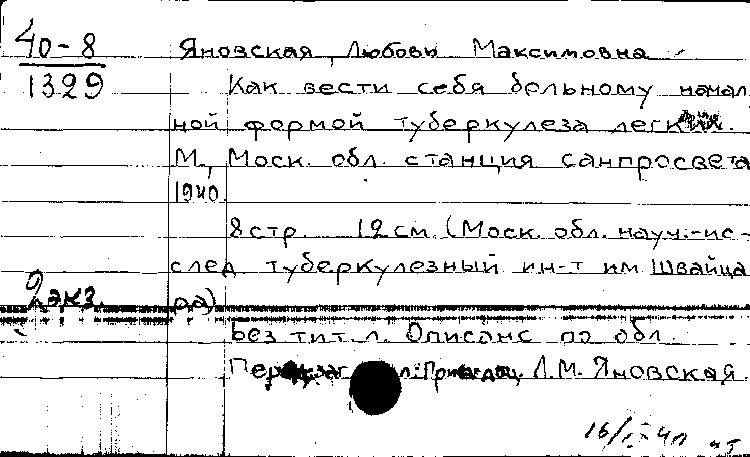 40-8
1329
Яновская, Любовь Максимовна
Как вести себя больному начал
ной формой туберкулеза легких.
М., Моск. обл. станция санпросвета
1940.
8 стр. 12 см. (Моск. обл. науч.-ис-
след. туберкулезный ин-т им Швайца
ра)
2 экз.
Без тит. л. Описанс по обл.
Перед Л.М. Яновская.